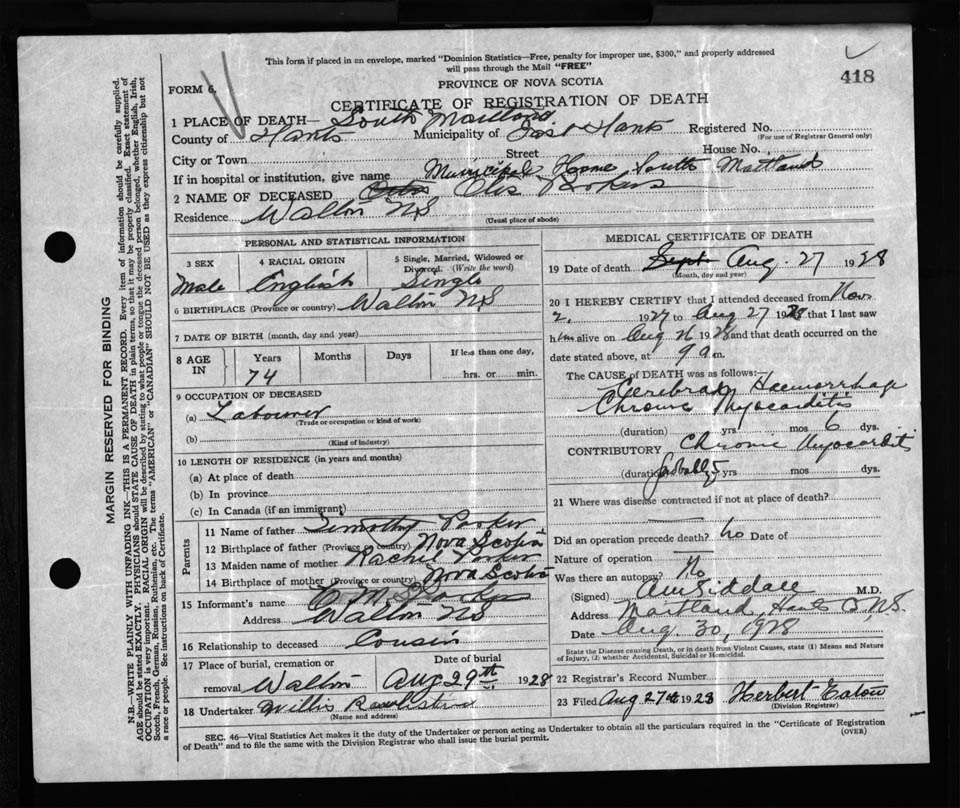 This form if placed in an envelope, marked "Dominion Statistics—Free, penalty for improper use, $300," and properly addressed
will pass through the Mail "FREE"
418
FORM 6.
PROVINCE OF NOVA SCOTIA
CERTIFICATE OF REGISTRATION OF DEATH
1 PLACE OF DEATH— South Maitland
County of Hants Municipality of East Hants Registered No.
(For use of Registrar General only)
City or Town Street House No.
If in hospital or institution, give name Municipal Home South Maitland
2 NAME OF DECEASED Otis
Residence Walton NS
(Usual place of abode)
PERSONAL AND STATISTICAL INFORMATION
3 SEX 4 RACIAL ORIGIN 5 Single, Married, Widowed or Divorced. (Write the word)
Male English Single
6 BIRTHPLACE (Province or country) Walton NS
7 DATE OF BIRTH (month, day and year)
8 AGE IN Years Months Days If less than one day,
74 hrs. or min.
9 OCCUPATION OF DECEASED
(a) Labourer
(Trade or occupation or kind of work)
(b)
(Kind of industry)
10 LENGTH OF RESIDENCE (in years and months)
(a) At place of death
(b) In province
(c) In Canada (if an immigrant)
Parents
11 Name of father Timothy Parker
12 Birthplace of father (Province or country) Nova Scotia
13 Maiden name of mother Rachel Parker
14 Birthplace of mother (Province or country) Nova Scotia
15 Informant's name C M Parker
Address Walton NS
16 Relationship to deceased Cousin
17 Place of burial, cremation or Date of burial
removal Walton Aug 29th 1928
18 Undertaker Willis
(Name and address)
MEDICAL CERTIFICATE OF DEATH
19 Date of death Sept Aug. 27 1928
(Month, day and year)
20 I HEREBY CERTIFY that I attended deceased from Nov
2, 1927 to Aug 27 1928 that I last saw
him alive on Aug 26 1928 and that death occurred on
date stated above, at 9 a m.
The CAUSE OF DEATH was as follows:—
Cerebral Haemorrhage
Chronic Myocarditis
(duration) yrs mos 6 dys.
CONTRIBUTORY Chronic Myocarditis
(duration) Probably yrs mos dys.
21 Where was disease contracted if not at place of death?
Did an operation precede death? No Date of
Nature of operation
Was there an autopsy? No
(Signed) M.D.
Address Maitland, Hants Co N.S.
Date Aug. 30, 1928
State the Disease causing Death, or in death from Violent Causes, state (1) Means and Nature
of Injury, (2) whether Accidental, Suicidal or Homicidal.
22 Registrar's Record Number
23 Filed Aug 27th 1928 Herbert Eaton
(Division Registrar)
SEC. 46—Vital Statistics Act makes it the duty of the Undertaker or person acting as Undertaker to obtain all the particulars required in the "Certificate of Registration
of Death" and to file the same with the Division Registrar who shall issue the burial permit.
(OVER)
MARGIN RESERVED FOR BINDING
N.B.—WRITE PLAINLY WITH UNFADING INK—THIS IS A PERMANENT RECORD. Every item of information should be carefully supplied.
AGE should be stated EXACTLY. PHYSICIANS should STATE CAUSE OF DEATH in plain terms, so that it may be properly classified. Exact statement of
OCCUPATION is very important. RACIAL ORIGIN will be described by stating to what people or tongue the deceased person belonged, whether English, Irish,
Scotch, French, German, Russian, Ruthenian, etc. The terms "AMERICAN" or "CANADIAN" SHOULD NOT BE USED as they express citizenship but not
a race or people. See instructions on back of Certificate.